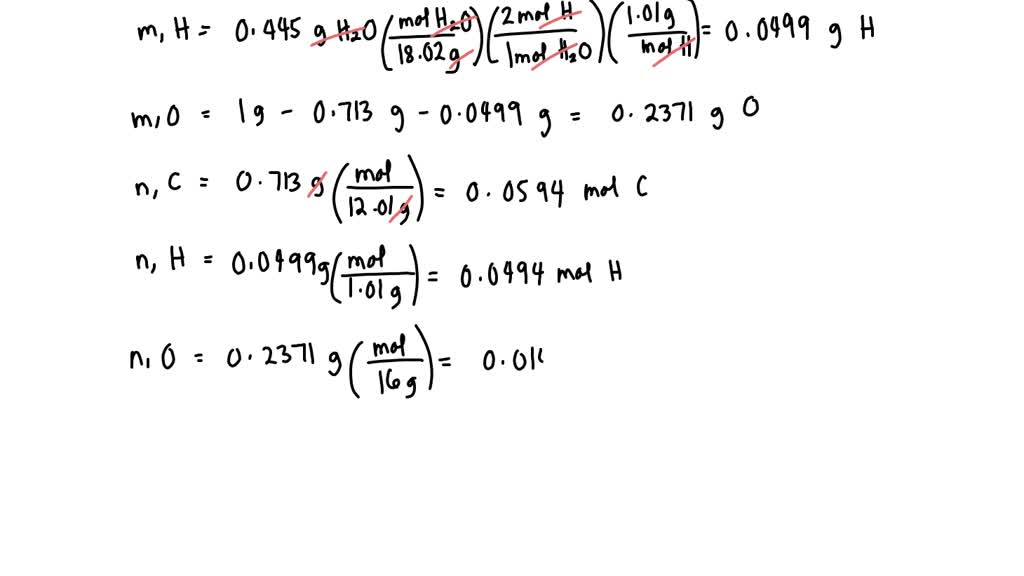 m, H = 0.445 g H₂O (mol H₂O / 18.02 g) (2 mol H / 1 mol H₂O) (1.01 g / mol H) = 0.0499 g H
m, O = 1g - 0.713 g - 0.0499 g = 0.2371 g O
n, C = 0.713 g (mol / 12.01 g) = 0.0594 mol C
n, H = 0.0499 g (mol / 1.01 g) = 0.0494 mol H
n, O = 0.2371 g (mol / 16 g) = 0.01